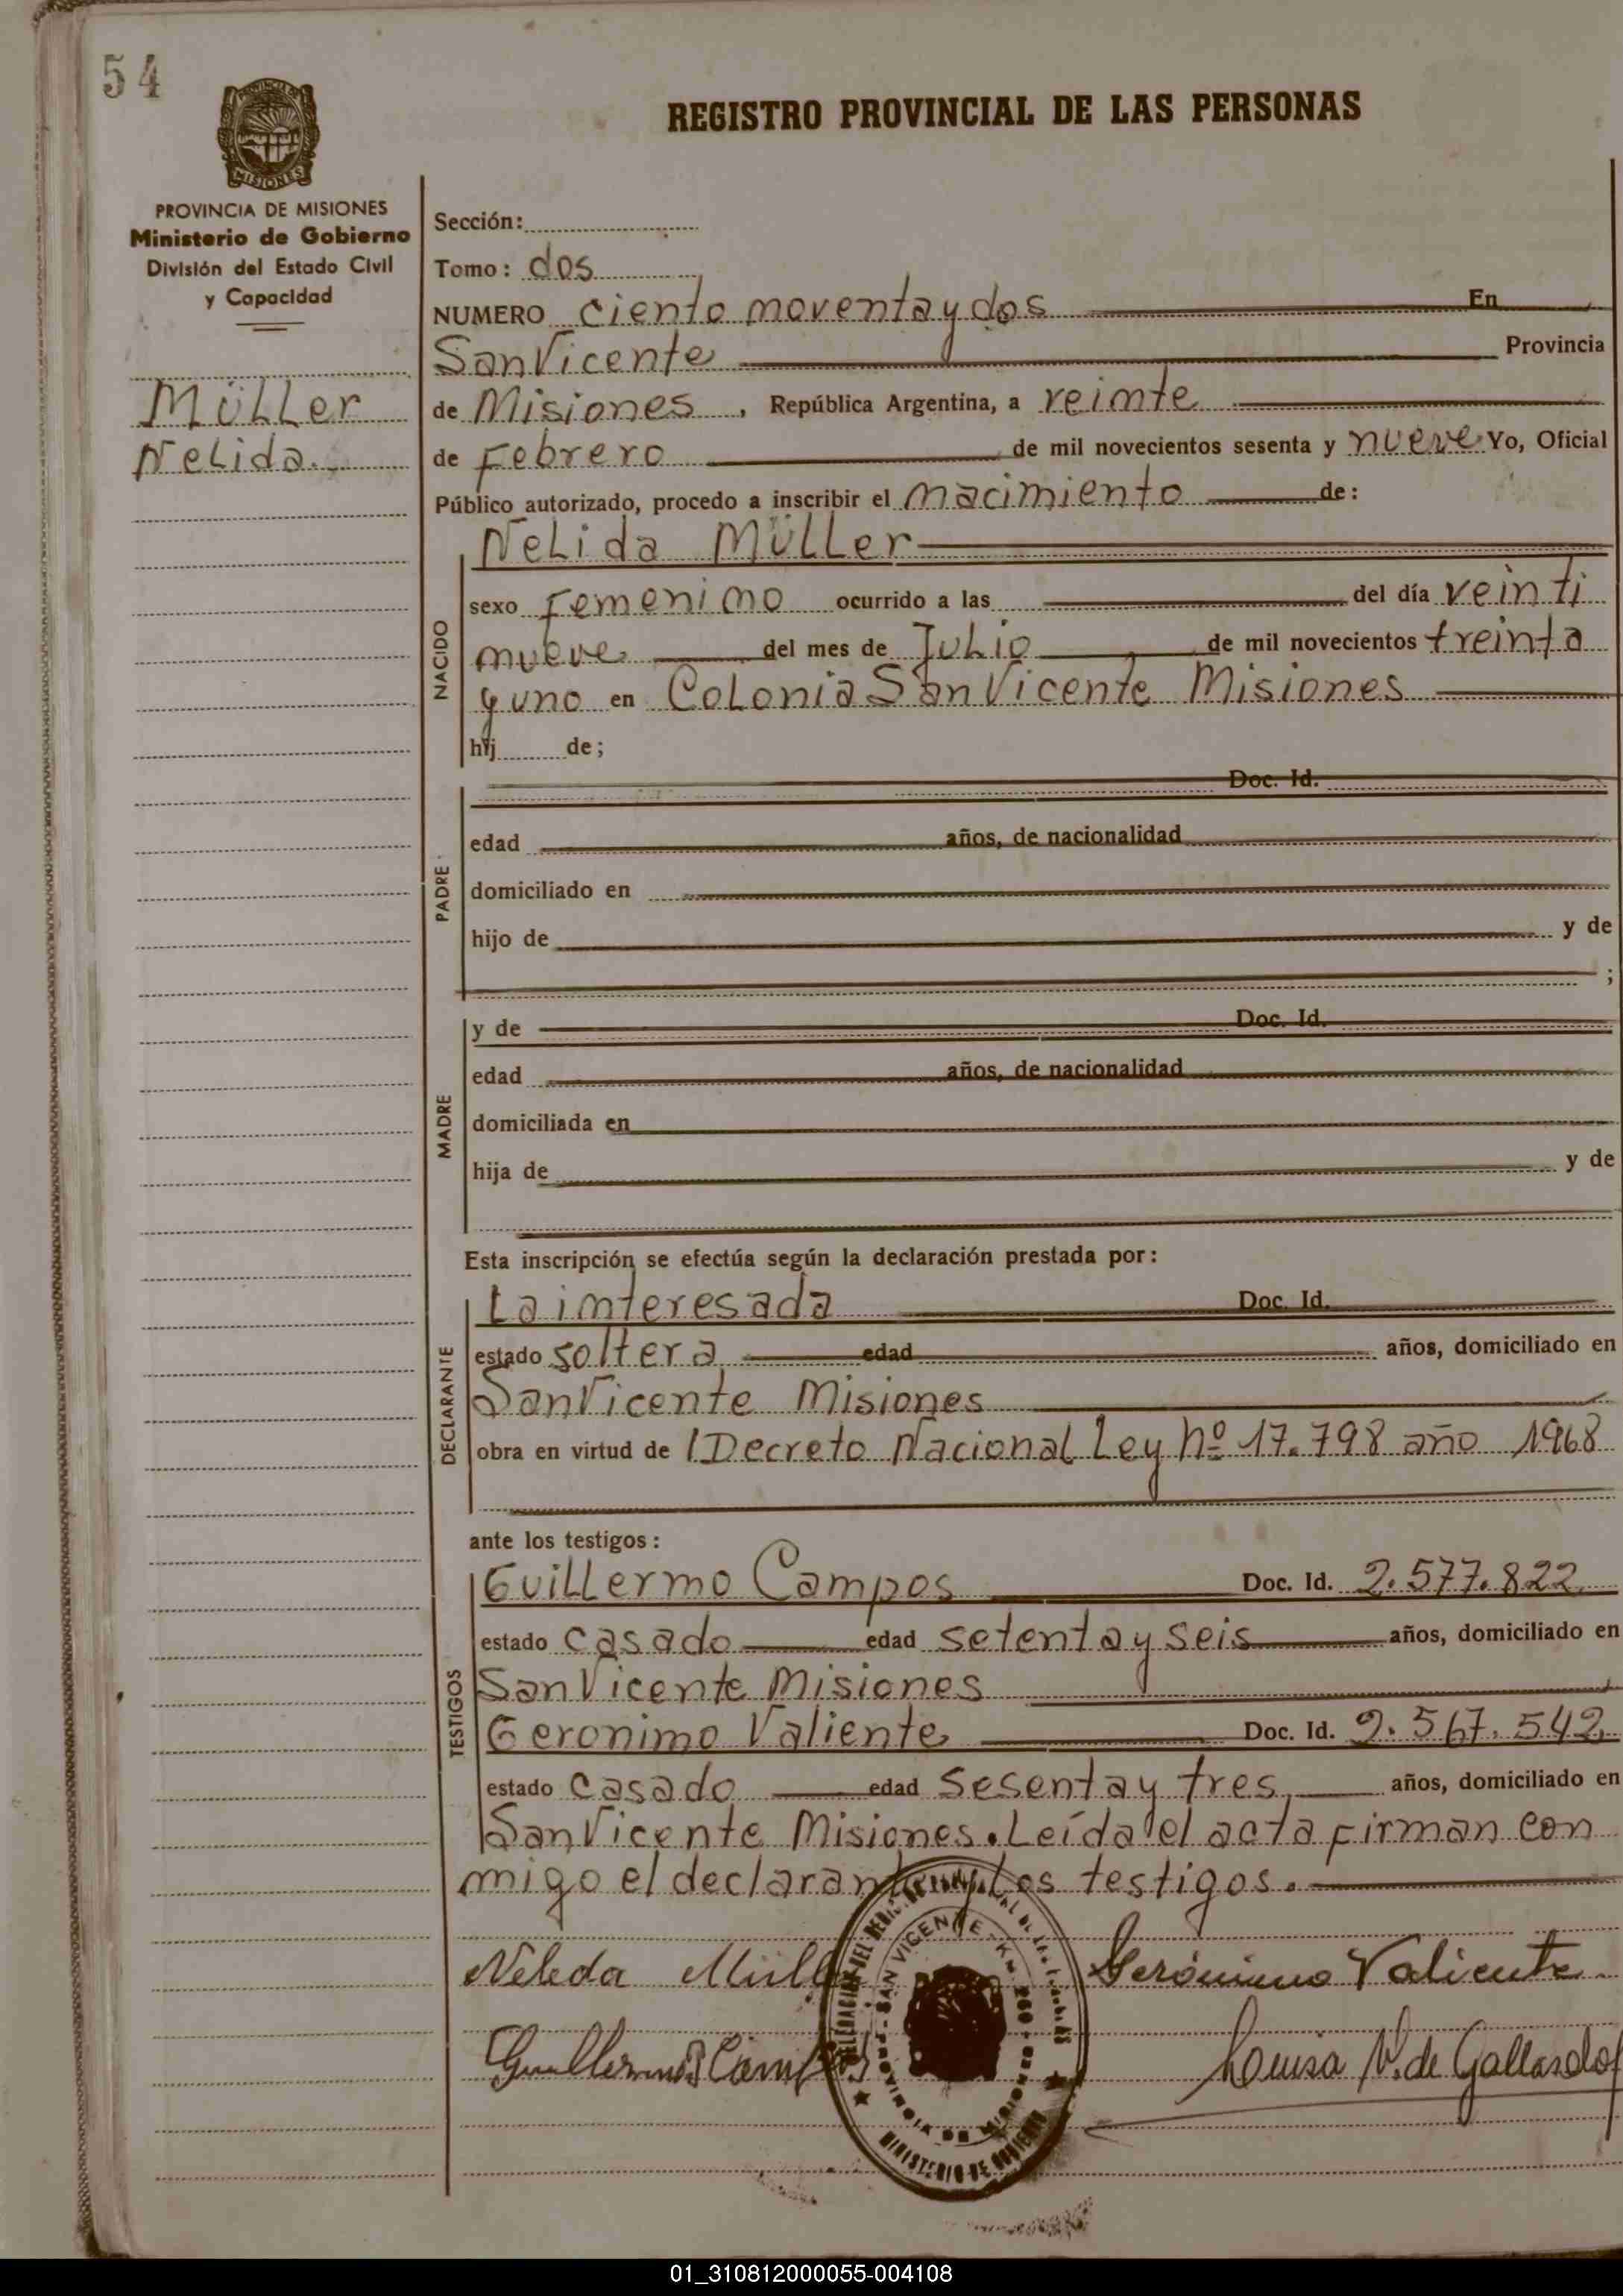 54
PROVINCIA DE MISIONES
Ministerio de Gobierno
División del Estado Civil
y Capacidad
Müller
Nelida.
REGISTRO PROVINCIAL DE LAS PERSONAS
Sección:
Tomo: dos
NUMERO ciento noventa y dos En
San Vicente Provincia
de Misiones, República Argentina, a veinte
de Febrero de mil novecientos sesenta y nueve Yo, Oficial
Público autorizado, procedo a inscribir el nacimiento de:
NACIDO
Nelida Müller
sexo Femenino ocurrido a las del día veinti
nueve del mes de Julio de mil novecientos treinta
y uno en Colonia San Vicente Misiones
hij de;
PADRE
Doc. Id.
edad años, de nacionalidad
domiciliado en
hijo de y de
;
MADRE
y de Doc. Id.
edad años, de nacionalidad
domiciliada en
hija de y de
Esta inscripción se efectúa según la declaración prestada por:
DECLARANTE
La interesada Doc. Id.
estado soltera edad años, domiciliado en
San Vicente Misiones
obra en virtud de l Decreto Nacional Ley Nº 17.798 año 1968
ante los testigos:
TESTIGOS
Guillermo Campos Doc. Id. 2.577.822
estado casado edad setenta y seis años, domiciliado en
San Vicente Misiones
Geronimo Valiente Doc. Id. 2.567.542
estado casado edad sesenta y tres años, domiciliado en
San Vicente Misiones. Leída el acta firman con
migo el declarante y los testigos.
Neleda Müll
Gerónimo Valiente
Guillermo Campos
Louisa V. de Gallardo
SAN VICENTE - Km 260
PROVINCIA DE MISIONES
MINISTERIO DE GOBIERNO
01_310812000055-004108